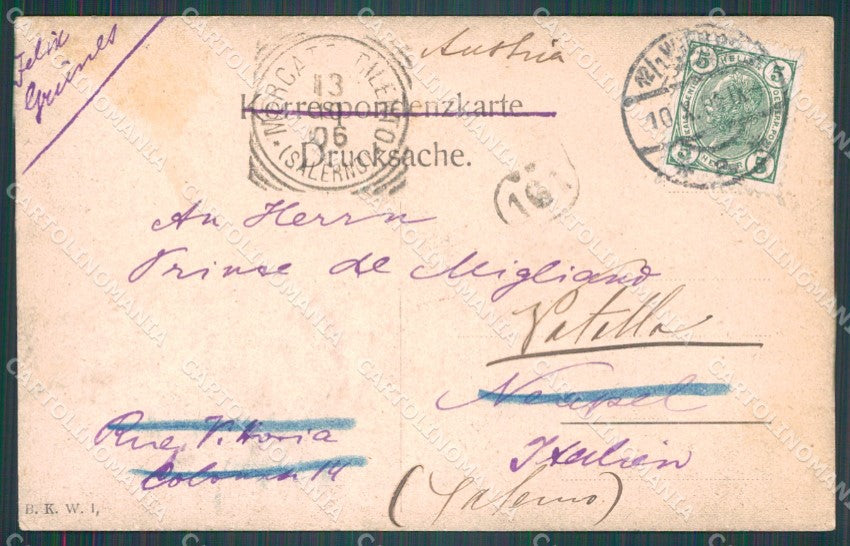 Felix
Grünes
Austria
13
06
(SALERNO)
Korrespondenzkarte
Drucksache.
5 5
5 5
10
An Herrn
Prince de Migliano
Vatolla
Neapel
Rue Vittoria
Colonna 14
Italien
(Salerno)
B. K. W. I,
CARTOLINOMANIA